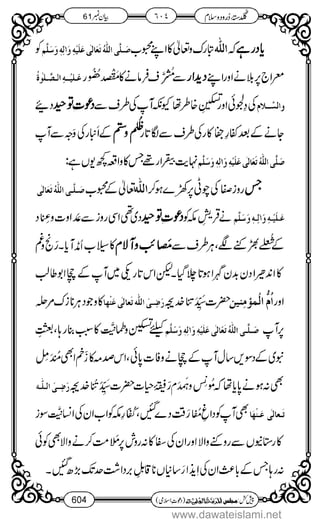 بیان نمبر 61 ٦٠٤ گلدستۂ درود و سلام
یاد رہے کہ اللہ تبارک وتعالیٰ کا اپنے محبوب صَلَّی اللہُ تَعَالٰی عَلَیْہِ وَاٰلِہٖ وَسَلَّم کو
معراج پر بُلانے اور اپنے دیدار سے مُشَرَّف فرمانے کا مقصد حُضُور عَلَیْہِ الصَّلٰوۃُ
وَالسَّلَام کی دلجوئی اور تسکینِ خاطر تھا کیونکہ آپ کی طرف سے دعوتِ توحید دئیے
جانے کے بعد کفارِ جفا کار کی طرف سے لگاتار ظُلْم و ستم کے انبار کی وجہ سے آپ
صَلَّی اللہُ تَعَالٰی عَلَیْہِ وَاٰلِہٖ وَسَلَّم نہایت بیقرار تھے جس کا واقعہ کچھ یوں ہے:
جس روز صفا کی چوٹی پر کھڑے ہو کر اللہ تعالیٰ کے محبوب صَلَّی اللہُ تَعَالٰی
عَلَیْہِ وَاٰلِہٖ وَسَلَّم نے قریشِ مکہ کو دعوتِ توحید دی تھی اسی روز سے عداوت و عناد
کے شعلے بھڑکنے لگے، ہر طرف سے مَصائب و آلام کا سیلاب اُمڈ آیا۔ رَنج و غم
کا اندھیرا دن بدن گہرا ہوتا چلا گیا۔ لیکن اس تاریکی میں آپ کے چچا ابو طالب
اور اُمُّ الْمُؤمِنِین حضرت سَیِّدَتُنا خدیجہ رَضِیَ اللہُ تَعَالٰی عَنْہَا کا وجود ہر نازک مرحلہ
پر آپ صَلَّی اللہُ تَعَالٰی عَلَیْہِ وَاٰلِہٖ وَسَلَّم کیلئے تسکین و طمانیت کا سبب بنا رہا، بعثتِ
نبوی کے دسویں سال آپ کے چچا نے وفات پائی، اس صدمہ کا زخم ابھی مُندمل
بھی نہ ہونے پایا تھا کہ مُونس و ہمدم رفیقۂ حیات حضرت سَیِّدَتُنا خدیجہ رَضِیَ اللہُ
تَعَالٰی عَنْہَا بھی آپ کو داغِ مُفارَقت دے گئیں، کفارِ مکہ کو اب ان کی انسانیت سوز
کارستانیوں سے روکنے والا اور ان کی سفاکانہ رَوِش پر مَلامت کرنے والا بھی کوئی
نہ رہا جس کے باعث ان کی ایذا رسانیاں ناقابلِ برداشت حد تک بڑھ گئیں۔
604
www.dawateislami.net